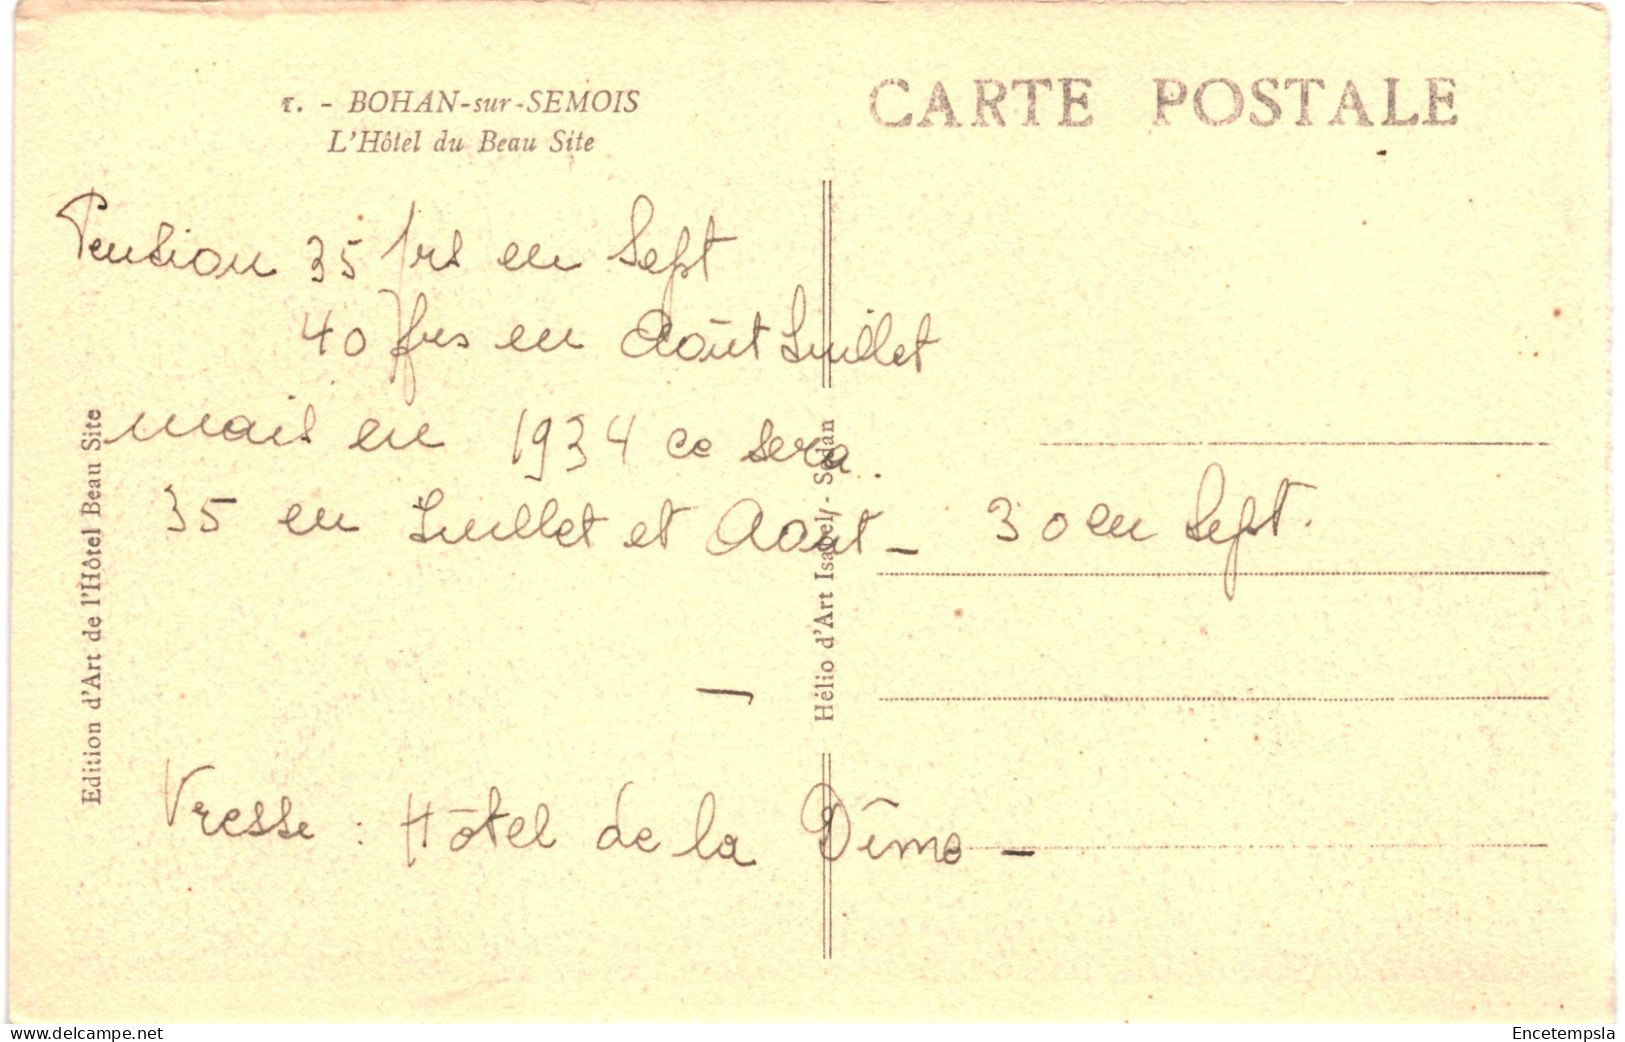 1. - BOHAN-sur-SEMOIS
L'Hôtel du Beau Site
CARTE POSTALE
Pension 35 frs en Sept
40 frs en Août Juillet
mais en 1934 ce sera
35 en Juillet et Août - 30 en Sept.
Vresse : Hôtel de la Dîme -
Edition d'Art de l'Hôtel Beau Site
Hélio d'Art Isabel - Sedan
delcampe.net
Encetempsla